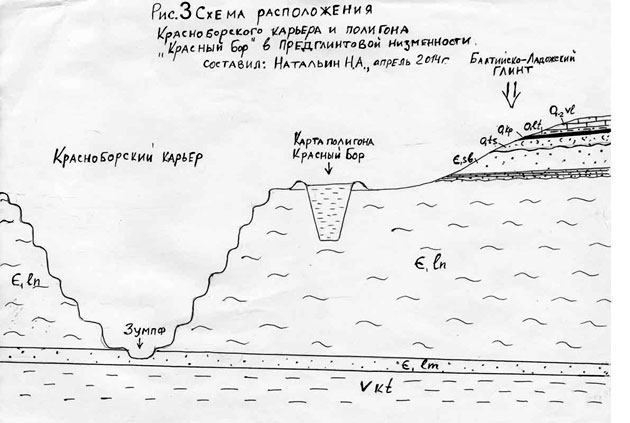 Рис. 3 Схема расположения
Красноборского карьера и полигона
„Красный Бор" в Предглинтовой низменности.
Составил: Натальин Н.А., апрель 2014г.
Балтийско-Ладожский
глинт
O₁₋₂vl
O₁lt
O₁lp
O₁ts
Є₁sb
Карта полигона
Красный Бор
Красноборский карьер
Є₁ln
Є₁ln
Зумпф
Є₁lm
Vkt